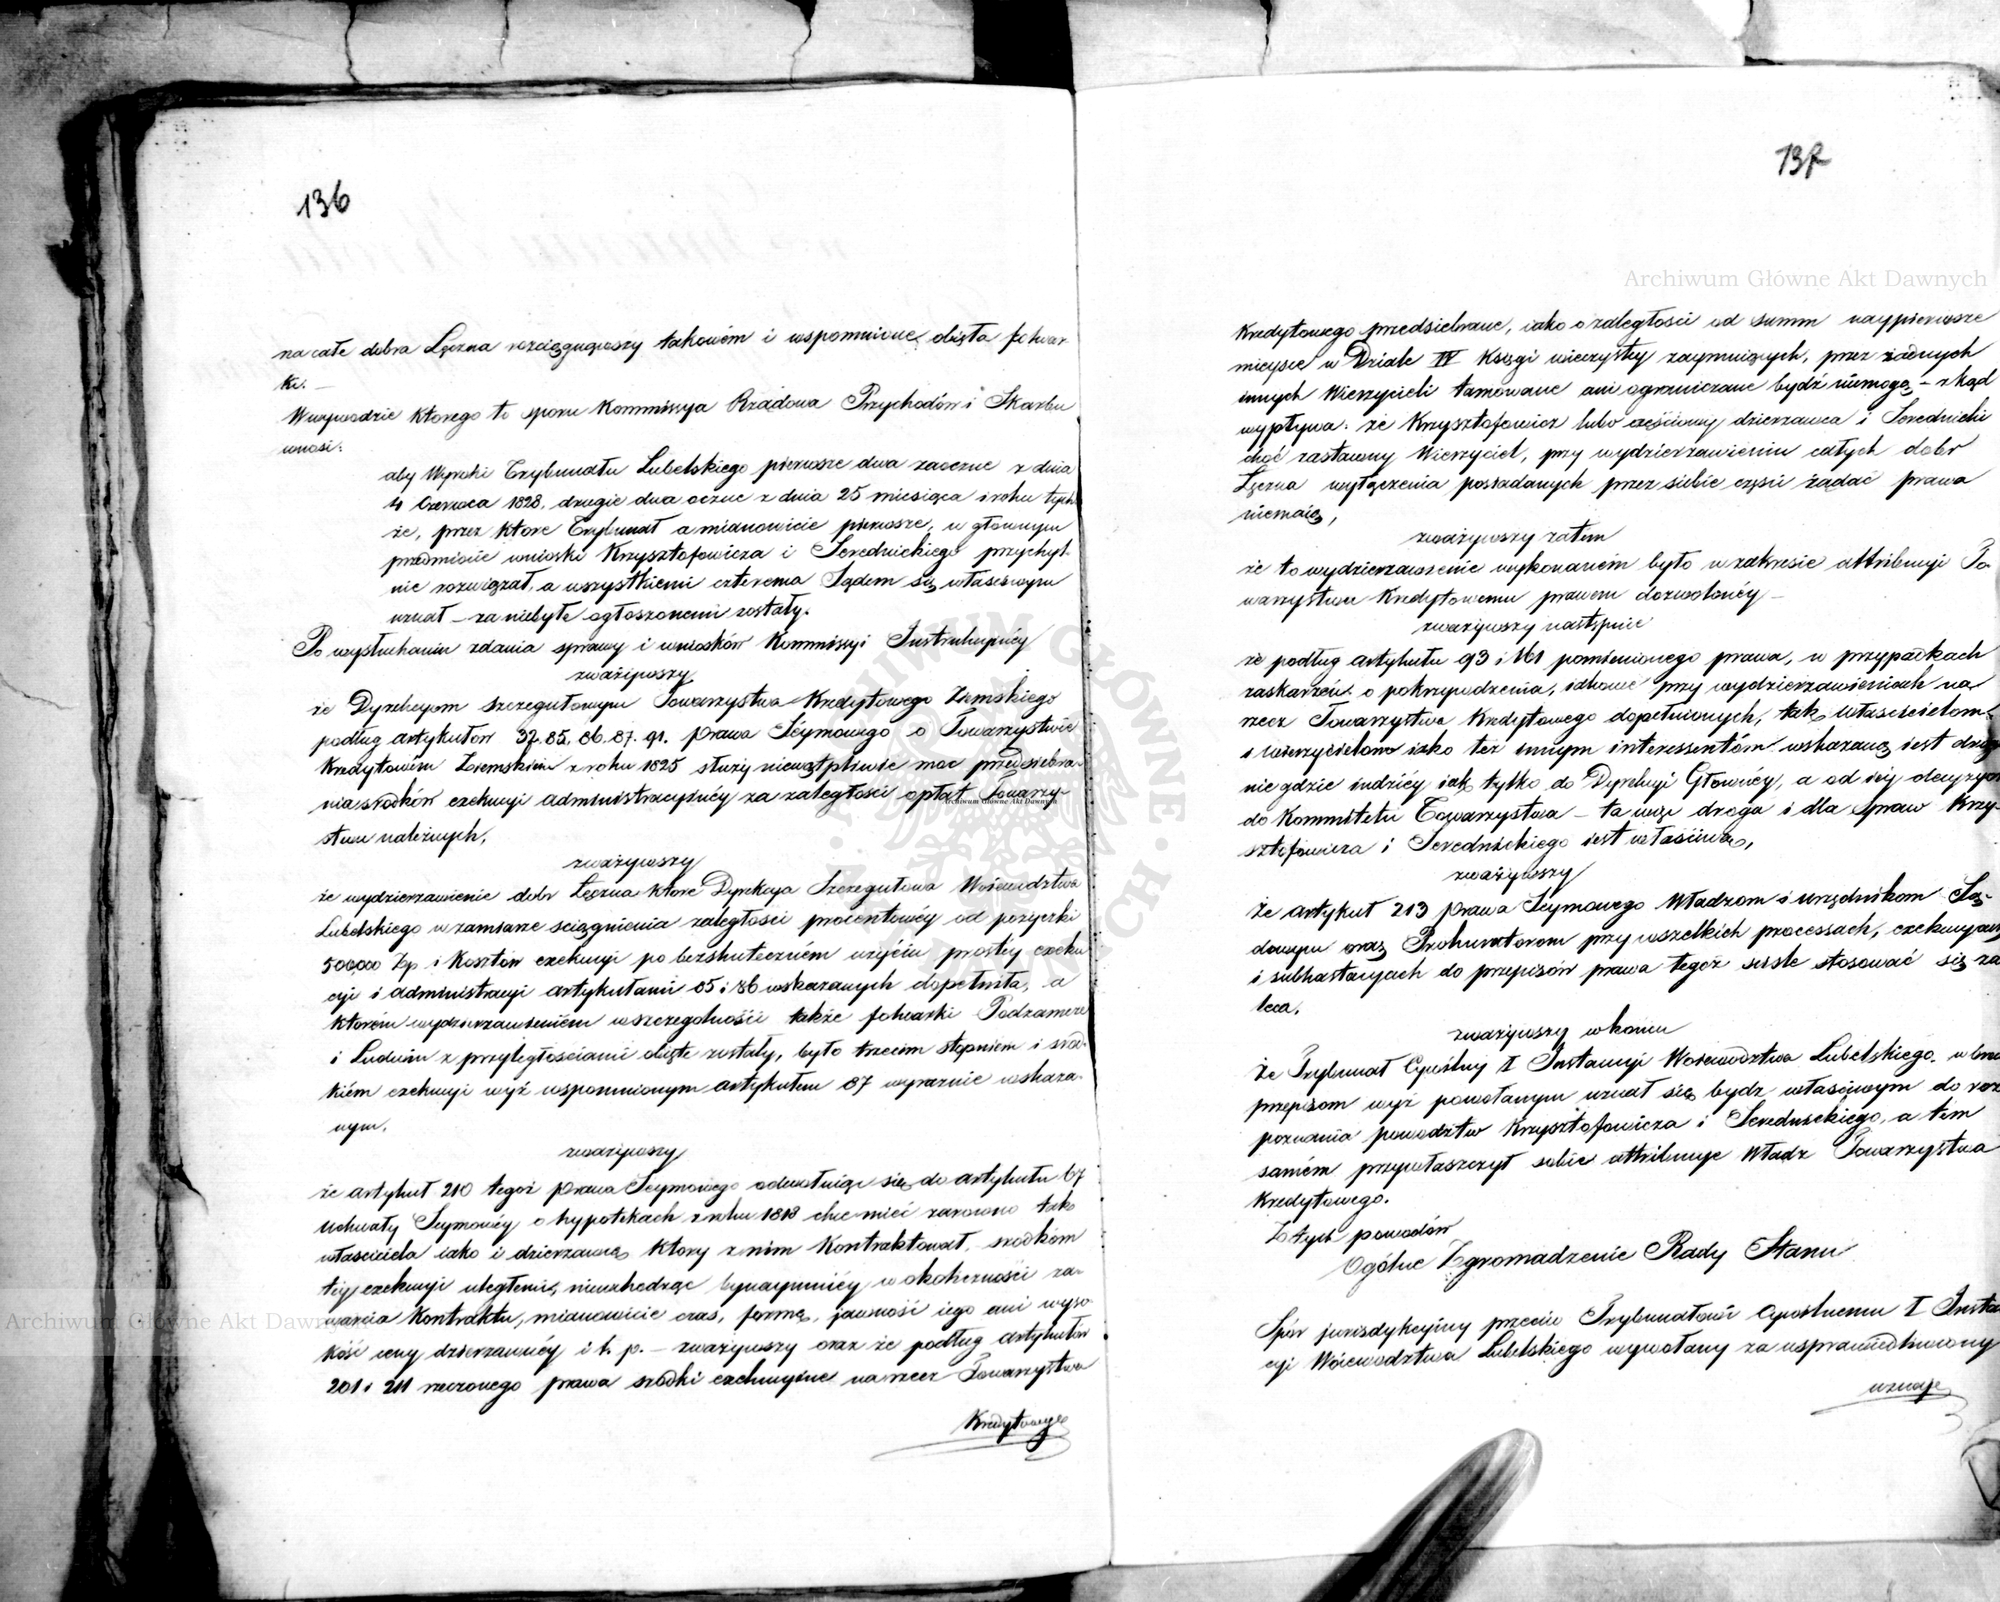 136
na całe dobra Łęczna rozciągnąwszy takowém i wspomnione objęła folwar-
ki. —
W wywodzie którego to sporu Kommissya Rządowa Przychodów i Skarbu
wnosi:
aby Wyroki Trybunału Lubelskiego pierwsze dwa zaoczne z dnia
4 Czerwca 1828, drugie dwa oczne z dnia 25 miesiąca i roku tych
że, przez które Trybunał a mianowicie pierwsze, w głównym
przedmiocie wnioski Krzysztofowicza i Serednickiego przychyl-
nie rozwiązał, a wszystkiemi czterema Sądem się właściwym
uznał — za niebyłe ogłoszonemi zostały.
Po wysłuchaniu zdania sprawy i wniosków Kommissyi Instrukcyinéy
zważywszy
że Dyrekcyom szczegułowym Towarzystwa Kredytowego Ziemskiego
podług artykułów 37. 85. 86. 87. 91. prawa Séymowego o Towarzystwie
Kredytowém Ziemskiém z roku 1825 służy niewątpliwie moc przedsiebra-
nia srodków exekucyi administracyinéy za zaległości opłat Towarzy-
stwu należnych,
zważywszy
że wydzierzawienie dobr Łęczna które Dyrekcya Szczegułowa Woiewództwa
Lubelskiego w zamiarze ściągnienia zaległości procentowéy od pożyczki
500000 Zp i Kosztów exekucyi po bezskuteczném użyciu prostéy exeku
cyi i administracyi artykułami 85 i 86 wskazanych dopełniła, a
którém wydzierzawieniem w szczegolności także folwarki Podzamcze
i Ludwin z przyległościami objęte zostały, było trzecim stopniem i srod-
kiém exekucyi wyż wspomnionym artykułem 87 wyraznie wskaza-
nym,
zważywszy
że artykuł 210 tegoż prawa Seymowego odwołuiąc się do artykułu 67
Uchwały Seymowéy o hypotekach z roku 1818 chce mieć zarowno tak
właściciela iako i dzierzawcę, który z nim kontraktował, srodkom
téy exekucyi uległemi, nieuchodząc bynaymniéy w okoliczności za-
warcia kontraktu, mianowicie czas, formę, jawność iego ani wyso
kość ceny dzierzawnéy i t. p. — zważywszy oraz że podług artykułów
201 i 211 rzeczonego prawa srodki exekucyjne na rzecz Towarzystwa
Kredytowego
137
Kredytowego przedsiebrane, iako o zaległości od summ naypierwsze
mieysce w Dziale IV Księgi wieczystéy zaymuiących, przez żadnych
innych Wierzycieli tamowane ani ograniczane bydź niemogą — zkąd
wypływa: że Krzysztofowicz lubo częściowy dzierzawca i Serednicki
choć zastawny Wierzyciel, przy wydzierzawieniu całych dobr
Łęczna wyłączenia posiadanych przez siebie części żądać prawa
niemaią,
zważywszy zatem
że to wydzierzawienie wykonaniem było w zakresie attribucyi To-
warzystwu Kredytowemu prawem dozwolonéy —
zważywszy następnie
że podług artykułu 93 i 161 pomienionego prawa, w przypadkach
zaskarżeń o pokrzywdzenia, iakowe przy wydzierzawieniach na
rzecz Towarzystwa Kredytowego dopełnionych, tak Właścicielom
i wierzycielom iako też innym interessentom wskazaną iest droga
nie gdzie indziéy iak tylko do Dyrekcyi Głownéy, a od iéy decyzyi
do Kommitetu Towarzystwa — ta więc droga i dla spraw Krzy-
sztofowicza i Serednickiego iest właściwą,
zważywszy
Że artykuł 213 prawa Seymowego Władzom i urzędnikom Są-
dowym oraz Prokuratorom przy wszelkich processach, exekucyach
i subhastacyach do przepisów prawa tegoż ściśle stosować się za
leca,
zważywszy w końcu
Że Trybunał Cywilny I Instancyi Woiewództwa Lubelskiego wbrew
przepisom wyż powołanym uznał się bydź właściwym do roz
poznania powodztw Krzysztofowicza i Serednickiego, a tém
samém przywłaszczył sobie attribucye Władz Towarzystwa
Kredytowego.
Z tych powodów
Ogólne Zgromadzenie Rady Stanu
Spór jurisdykcyiny przeciw Trybunałowi Cywilnemu I Insta
cyi Woiewództwa Lubelskiego wywołany za usprawiedliwiony
uznaje
Archiwum Główne Akt Dawnych
Archiwum Główne Akt Dawnych
Archiwum Główne Akt Dawnych